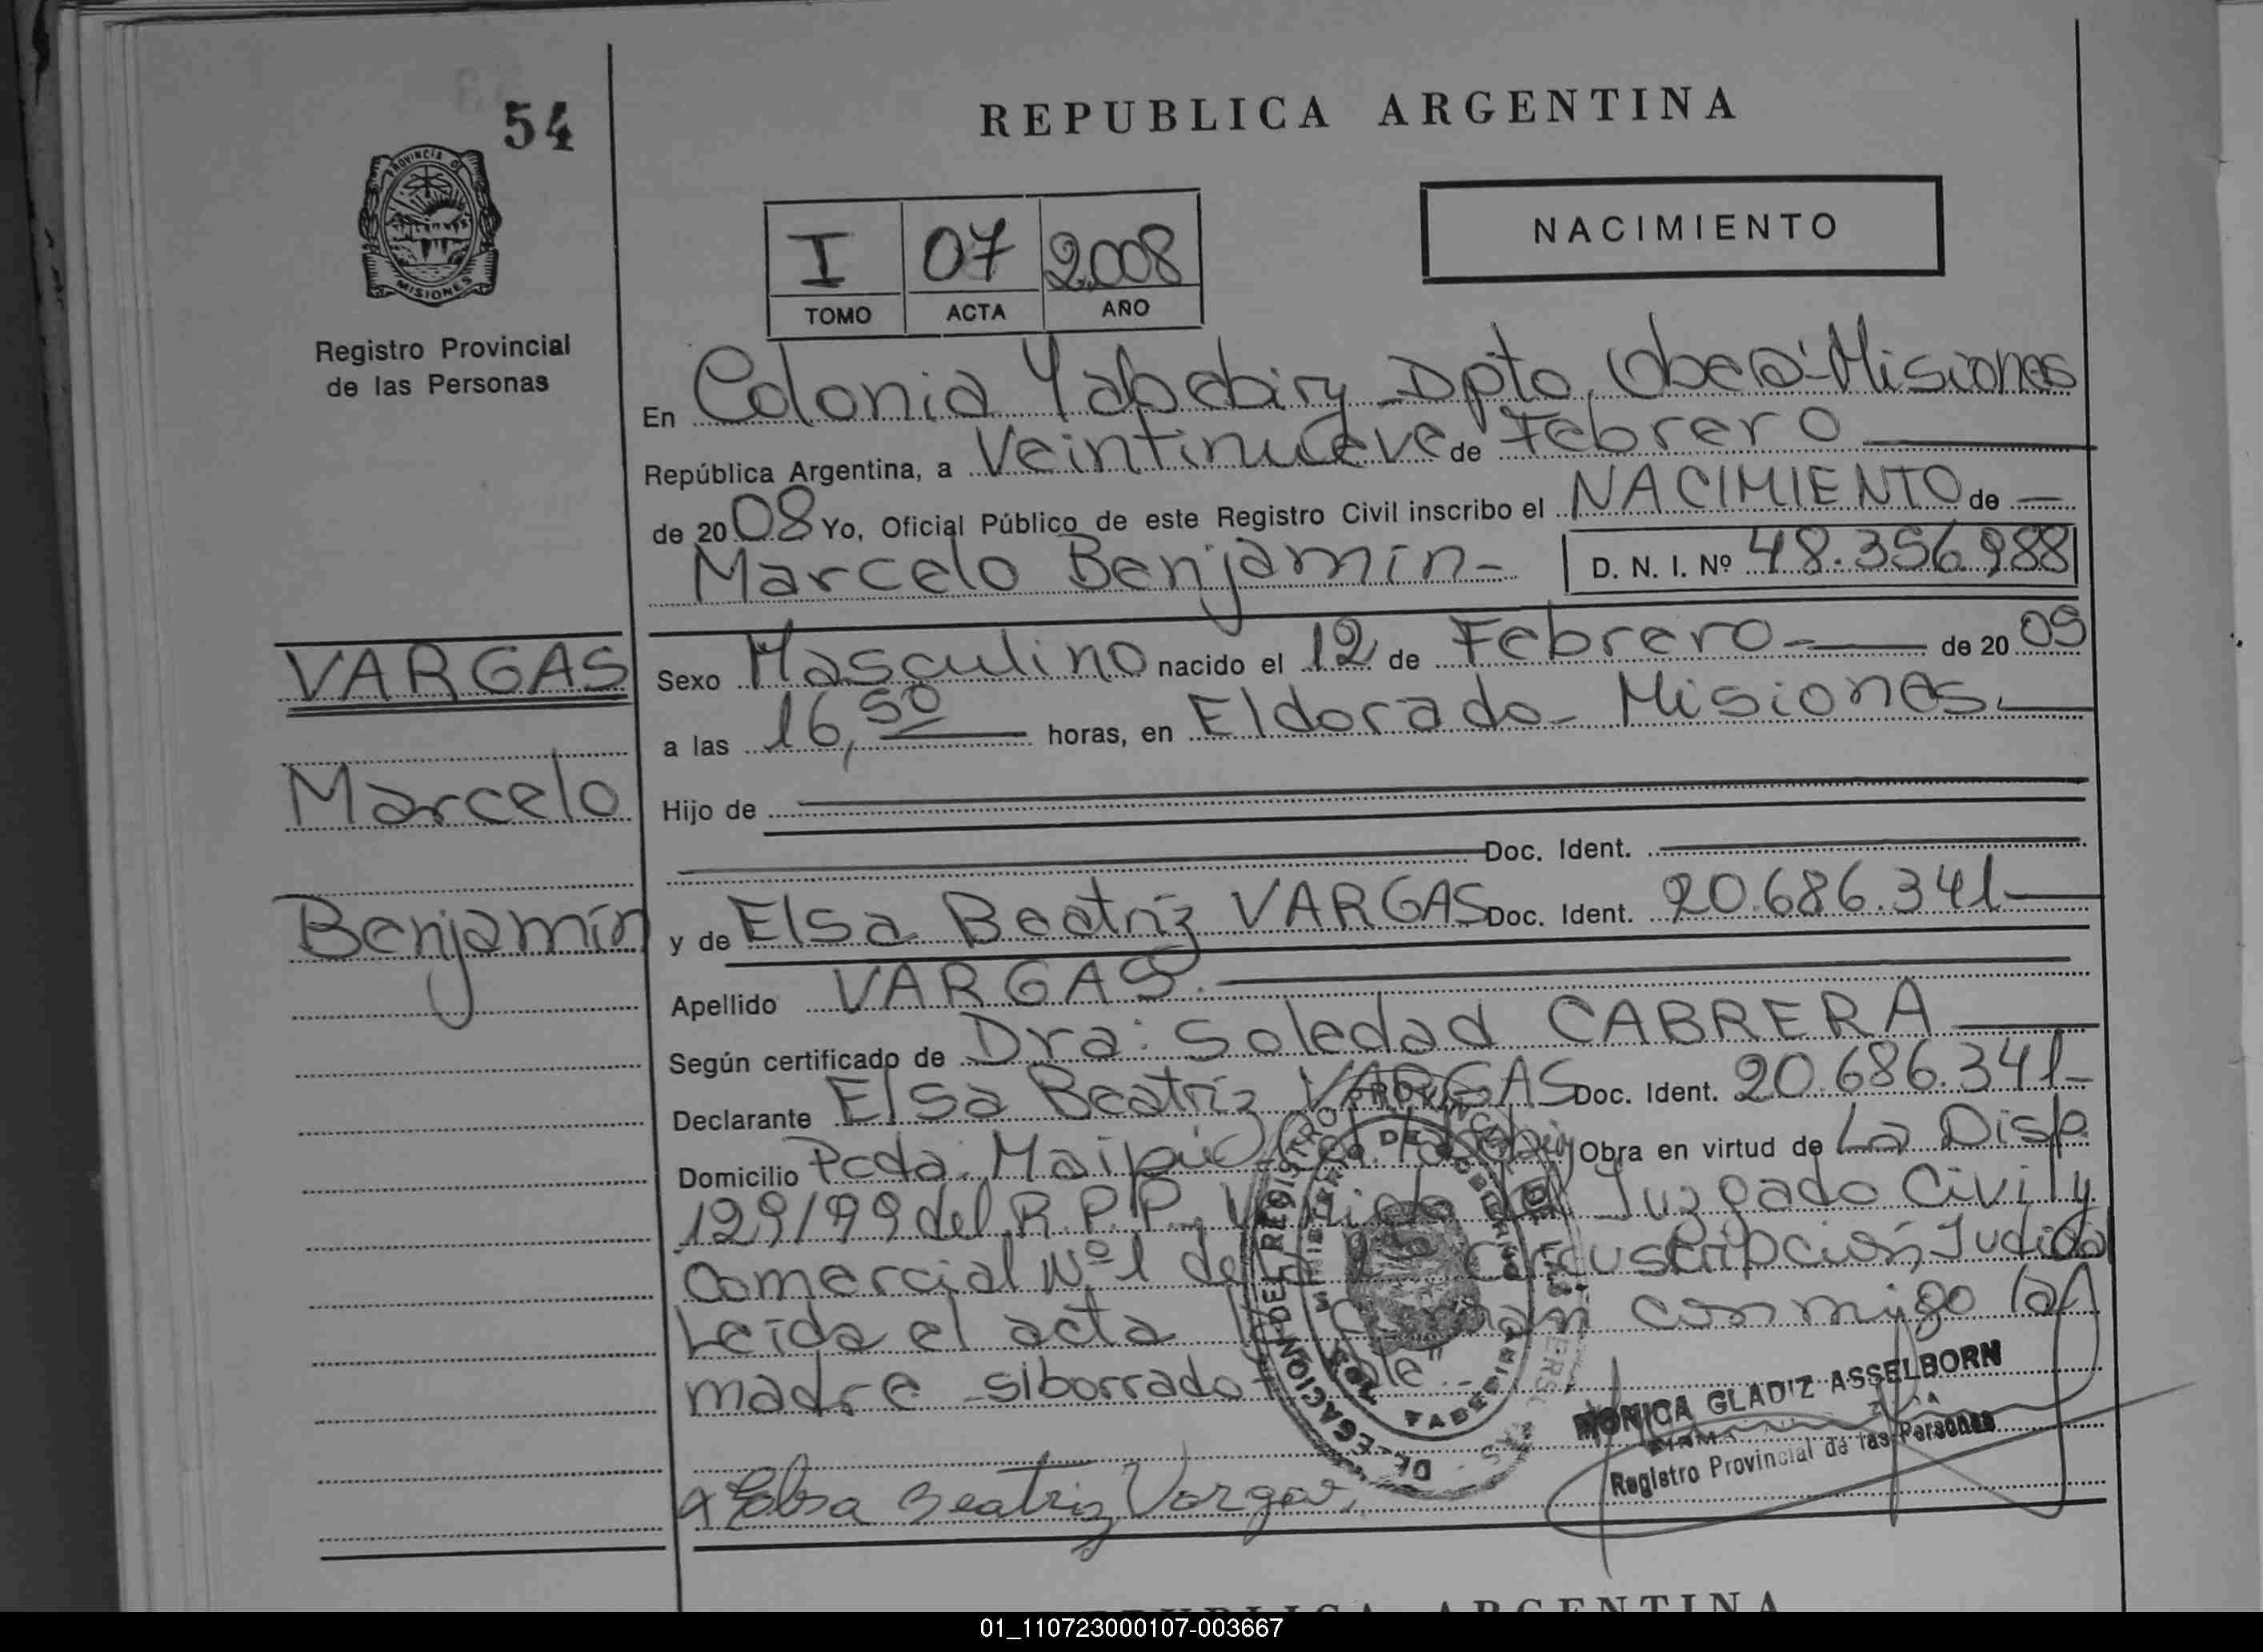 54
REPUBLICA ARGENTINA
PROVINCIA DE
MISIONES
NACIMIENTO
I 07 2008
TOMO ACTA AÑO
Registro Provincial
de las Personas
En Colonia Yabebiry Dpto. Oberá-Misiones
República Argentina, a Veintinueve de Febrero
de 2008 Yo, Oficial Público de este Registro Civil inscribo el NACIMIENTO de
Marcelo Benjamín- D. N. I. Nº 48.356.988
VARGAS
Marcelo
Benjamín
Sexo Masculino nacido el 12 de Febrero de 20 09
a las 16,50 horas, en Eldorado - Misiones.
Hijo de
Doc. Ident.
y de Elsa Beatriz VARGAS Doc. Ident. 20.686.341
Apellido VARGAS.
Según certificado de Dra: Soledad CABRERA
Declarante Elsa Beatriz VARGAS Doc. Ident. 20.686.341-
Domicilio Pcda. Maipú Col. Yabebiry Obra en virtud de La Disp.
129/99 del R.P.P. Juzgado Civil y
Comercial Nº1 de la Circuscripción Judicial
Leída el acta conmigo la
madre -siborrado- Vale".
MONICA GLADIZ ASSELBORN
Registro Provincial de las Personas
Elsa Beatriz Vargas
REPUBLICA ARGENTINA
01_110723000107-003667